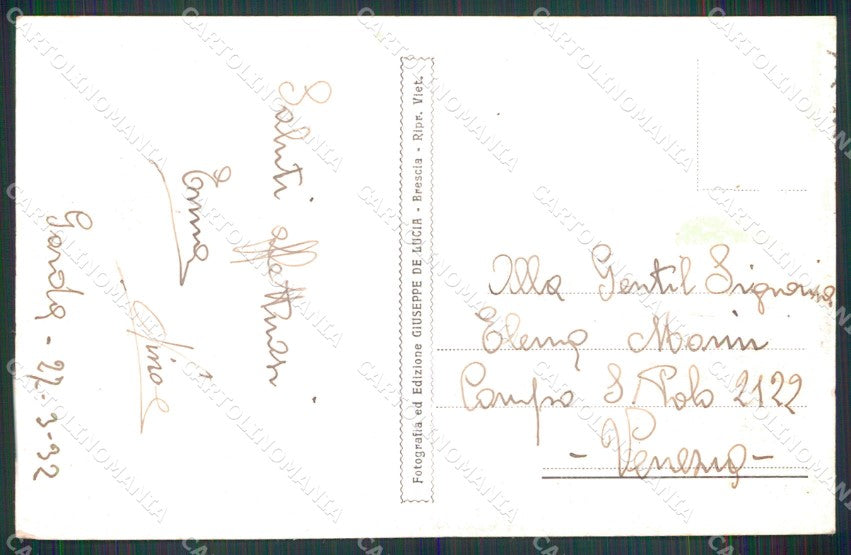 Saluti affettuosi
Emma
Gino
Garda - 27-3-32
Fotografia ed Edizione GIUSEPPE DE LUCIA - Brescia - Ripr. Viet.
Alla Gentil Signorina
Elena Morin
Campo S. Polo 2122
- Venezia -
CARTOLINOMANIA